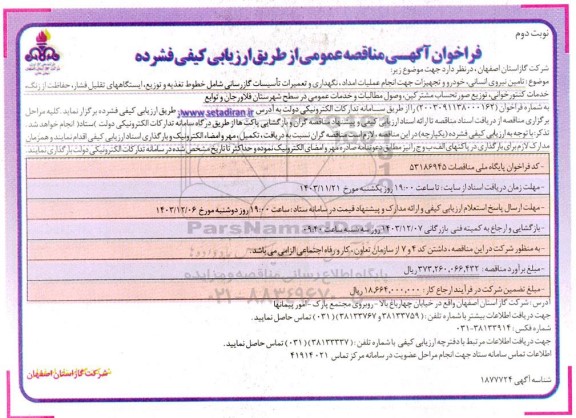 نوبت دوم
فراخوان آگهی مناقصه عمومی از طریق ارزیابی کیفی فشرده
شرکت گاز استان اصفهان، در نظر دارد جهت موضوع زیر:
موضوع: تامین نیروی انسانی، خودرو و تجهیزات جهت انجام عملیات امداد، نگهداری و تعمیرات تأسیسات گازرسانی شامل خطوط تغذیه و توزیع، ایستگاههای تقلیل فشار، حفاظت از زنگ،
خدمات کنتورخوانی، توزیع صورتحساب مشترکین، وصول مطالبات و خدمات عمومی در سطح شهرستان فلاورجان و توابع
به شماره فراخوان (۲۰۰۳۰۹۱۱۳۸۰۰۰۱۶۴) را از طریق سامانه تدارکات الکترونیکی دولت به آدرس www.setadiran.ir طریق ارزیابی کیفی فشرده برگزار نماید. کلیه مراحل
برگزاری مناقصه از دریافت اسناد مناقصه تا ارائه اسناد ارزیابی کیفی و پیشنهاد مناقصه گران و بازگشایی پاکت ها از طریق درگاه سامانه تدارکات الکترونیکی دولت (ستاد) انجام خواهد شد.
تذکر: با توجه به ارزیابی کیفی فشرده (یکپارچه) در این مناقصه لازم است مناقصه گران نسبت به دریافت، تکمیل، مهر و امضاء الکترونیک و بارگذاری اسناد ارزیابی کیفی اقدام نمایند و همزمان
مدارک لازم برای بارگذاری در پاکتهای الف، ب و ج را نیز مطابق دعوتنامه صادره مهر و امضای الکترونیک نموده و حداکثر تا تاریخ مشخص شده در سامانه تدارکات الکترونیکی دولت بارگذاری نمایند.
- کد فراخوان پایگاه ملی مناقصات ۵۳۱۸۶۹۴۵
- مهلت زمان دریافت اسناد از سایت: تا ساعت ۱۹:۰۰ روز یکشنبه مورخ ۱۴۰۳/۱۱/۲۱
- مهلت ارسال پاسخ استعلام ارزیابی کیفی و ارائه مدارک و پیشنهاد قیمت در سامانه ستاد: ساعت ۱۹:۰۰ روز دوشنبه مورخ ۱۴۰۳/۱۲/۰۶
- بازگشایی و ارجاع به کمیته فنی بازرگانی ۱۴۰۳/۱۲/۰۷ روز سه شنبه ساعت ۰۹:۴۰
- به منظور شرکت در این مناقصه، داشتن کد ۴ و ۷ از سازمان تعاون، کار و رفاه اجتماعی الزامی می باشد.
- مبلغ برآورد مناقصه: ۳۷۳,۲۶۰,۰۶۶,۴۳۲ ریال
- مبلغ تضمین شرکت در فرآیند ارجاع کار: ۱۸,۶۶۴,۰۰۰,۰۰۰ ریال
آدرس: شرکت گاز استان اصفهان واقع در خیابان چهارباغ بالا - روبروی مجتمع پارک - کور پیمانها
جهت دریافت اطلاعات بیشتر با شماره تلفن: (۳۸۱۳۳۷۵۹) و (۳۸۱۳۳۷۶۷) (۰۳۱) تماس حاصل نمایید.
شماره فکس: ۳۸۱۳۳۹۱۴-۰۳۱
جهت دریافت اطلاعات مرتبط با دفترچه ارزیابی کیفی با شماره تلفن: (۳۸۱۳۳۳۳۷) (۰۳۱) تماس حاصل نمایید.
اطلاعات تماس سامانه ستاد جهت انجام مراحل عضویت در سامانه مرکز تماس ۰۲۱ ۴۱۹۱۴
شناسه آگهی ۱۸۷۷۷۲۴
شرکت گاز استان اصفهان